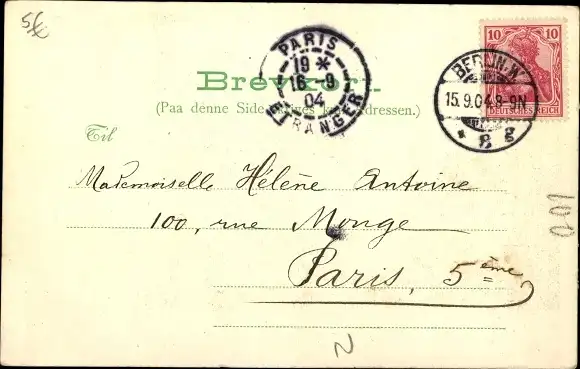 5€
10 10
DEUTSCHES REICH
BERLIN. W.
15.9.04.8-9N
* 8 g
PARIS
19 *
16-9
04
ETRANGER
Brevkort.
(Paa denne Side Adressen.)
Til
Mademoiselle Hélène Antoine
100, rue Monge
Paris, 5ème
N
001